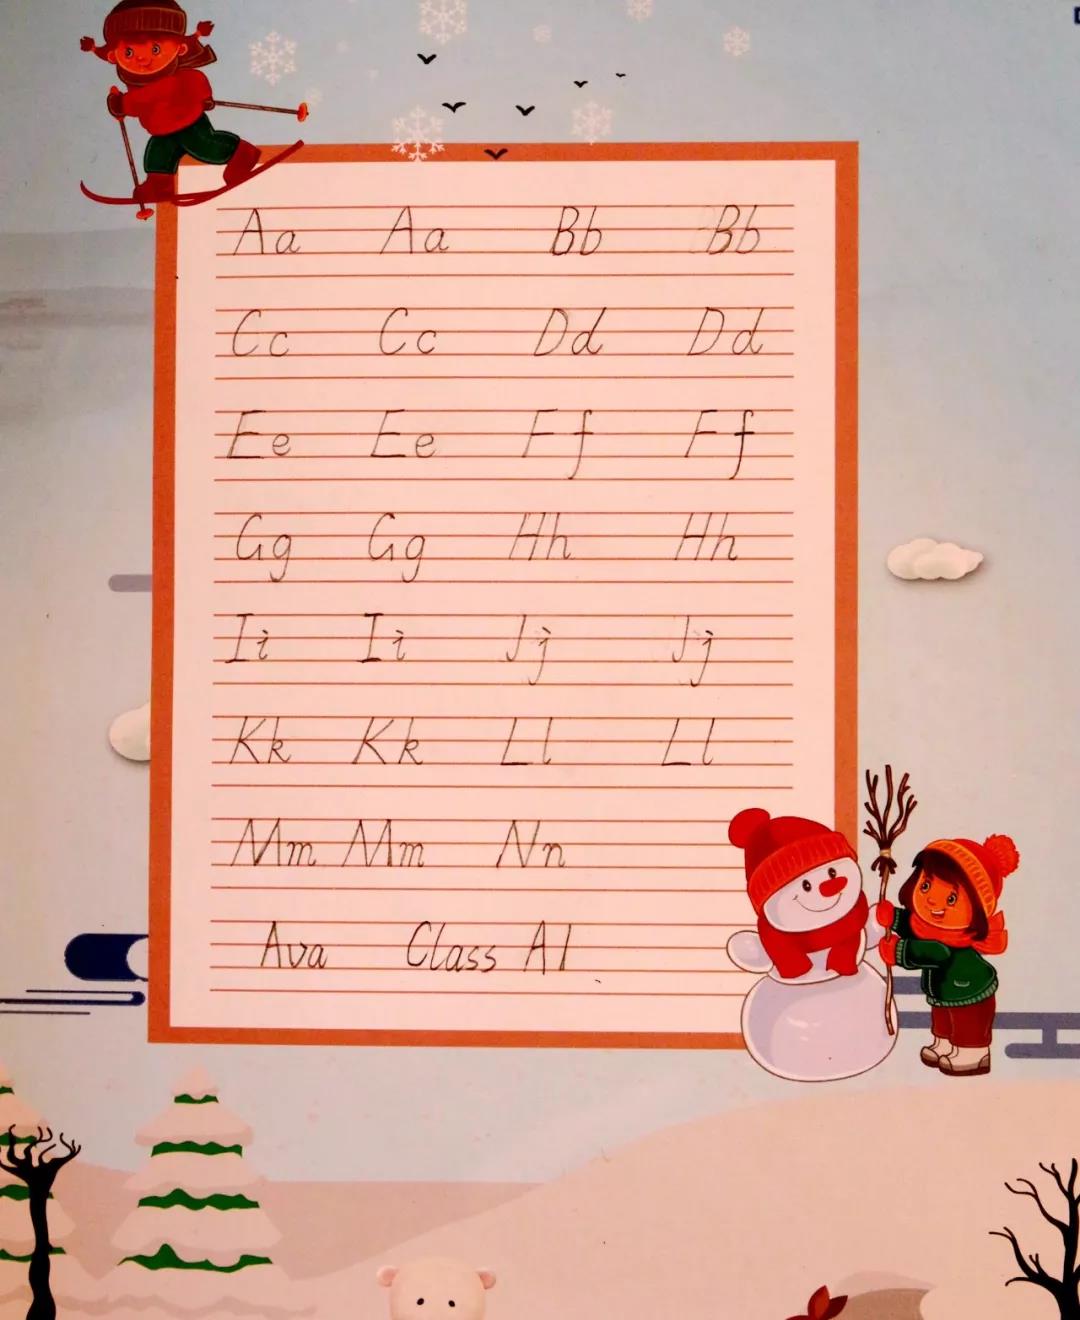 Aa Aa Bb Bb
Cc Cc Dd Dd
Ee Ee Ff Ff
Gg Gg Hh Hh
Ii Ii Jj Jj
Kk Kk Ll Ll
Mm Mm Nn
Ava Class A1